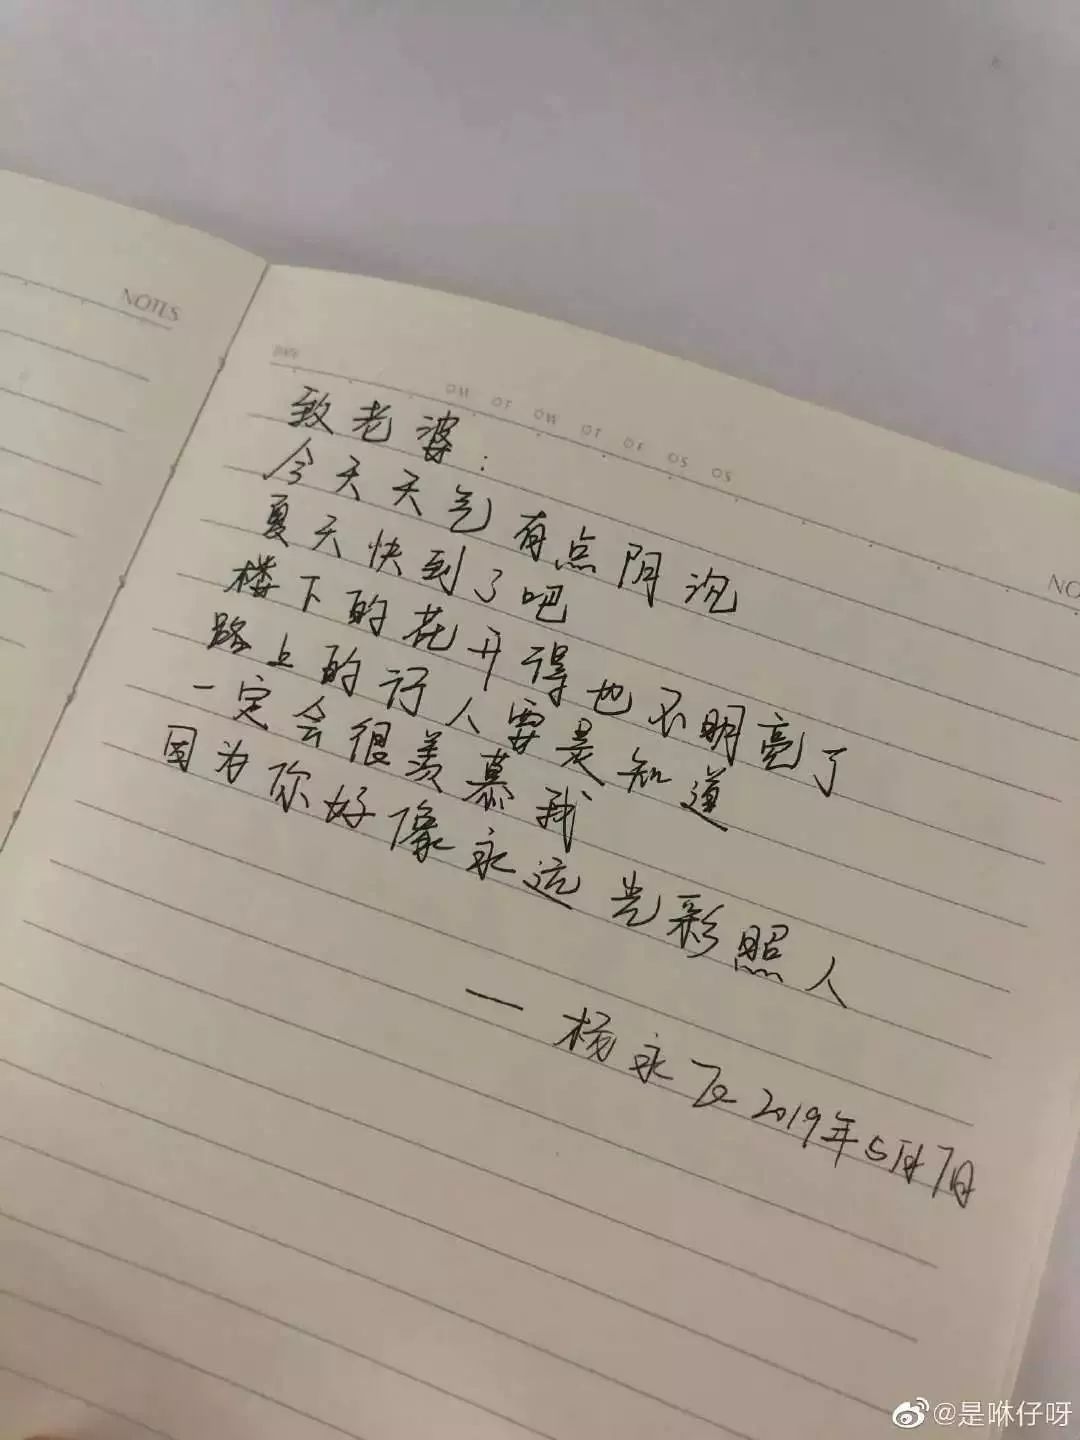 NOTES
DATE
MO TO WO TO FO SO SO
NO
致老婆：
今天天气有点阴沉
夏天快到了吧
楼下的花开得也不明亮了
路上的行人要是知道
一定会很羡慕我
因为你好像永远光彩照人
— 杨永飞 2019年5月7日
@是咻仔呀